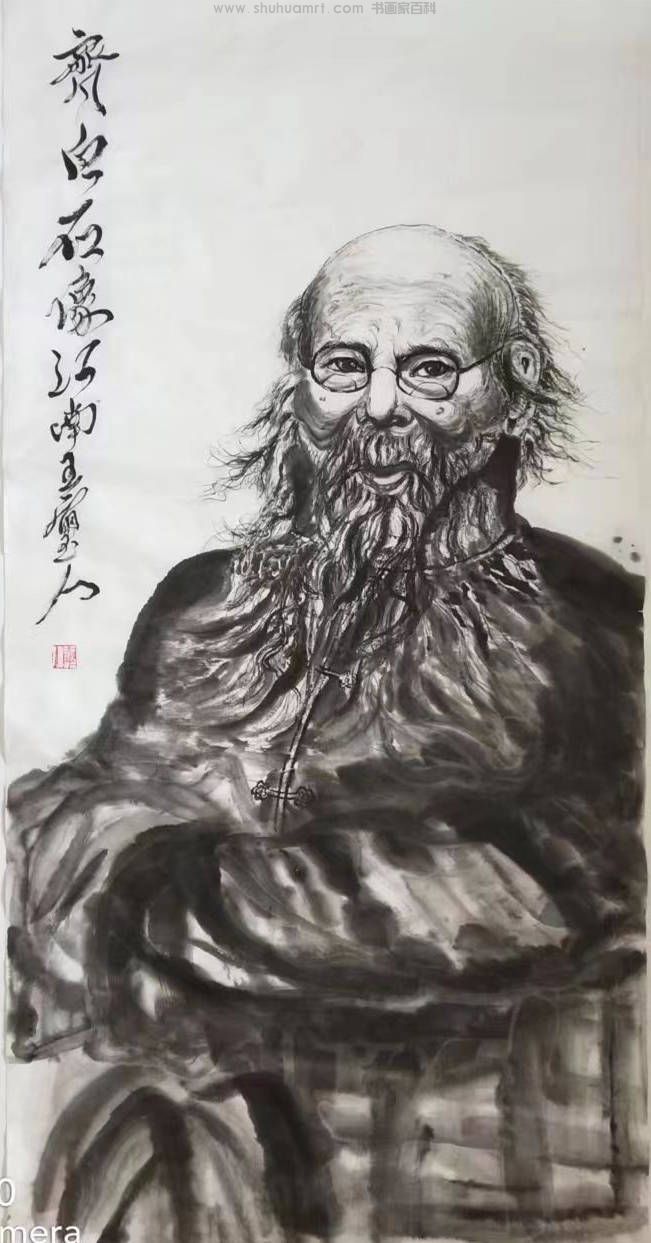 www.shuhuamrt.com 书画家百科
齊白石像江南王
0
mera